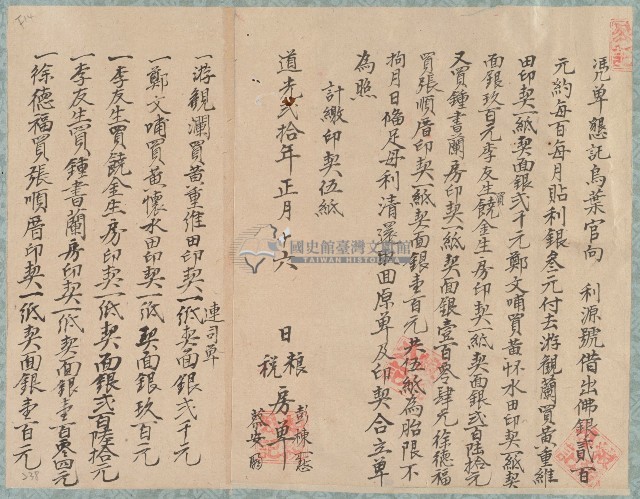 憑單懇託烏葉官向 利源號借出佛銀貳百
元約每百每月貼利銀叁元付去游觀蘭買黃重維
田印契一紙契面銀貳千元鄭文哺買黃怀水田印契一紙契
面銀玖百元李友生買饒金生房印契一紙契面銀貳百陸拾元
又買鍾書蘭房印契一紙契面銀壹百零肆元徐德福
買張順厝印契一紙契面銀壹百元共伍紙為胎限不
拘月日俻足母利清還動回原單及印契合立單
為照
計繳印契伍紙
道光貳拾年正月 六 日 粮稅 房單 彭棟 蔡安
一游觀瀾買黃重維田印契一紙契面銀貳千元
連司單
一鄭文哺買黃懷水田印契一紙契面銀玖百元
一李友生買饒金生房印契一紙契面銀貳百陸拾元
一李友生買鍾書蘭房印契一紙契面銀壹百零四元
一徐德福買張順厝印契一紙契面銀壹百元
國史館臺灣文獻館
TAIWAN HISTORICA
238